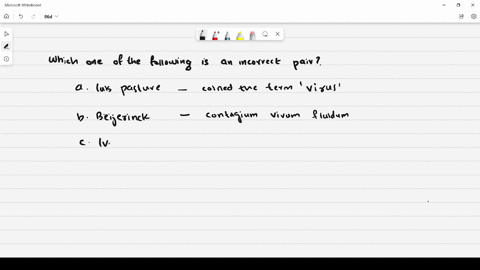 Microsoft Whiteboard
Which one of the following is an incorrect pair?
a. Luis pasture — coined the term 'virus'
b. Beijerinck — contagium vivum fluidum
c. Iv